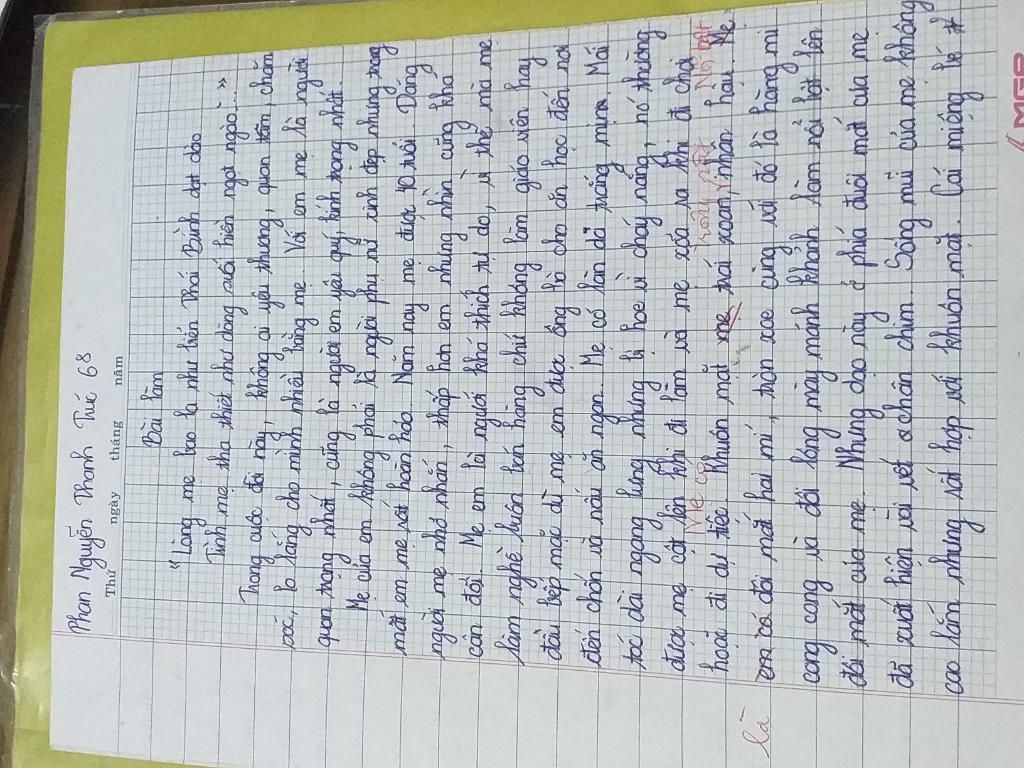 Phan Nguyễn Thanh Trúc 6
Thứ ngày tháng năm
Bài làm
"Lòng mẹ bao la như biển Thái Bình dạt dào
Tình mẹ tha thiết như dòng suối hiền ngọt ngào..."
Trong cuộc đời này, không ai yêu thương, quan tâm, chăm
sóc, lo lắng cho mình nhiều bằng mẹ. Với em mẹ là người
quan trọng nhất, cũng là người em yêu quý, kính trọng nhất.
Mẹ của em không phải là người phụ nữ xinh đẹp nhưng trong
mắt em mẹ rất hoàn hảo. Năm nay mẹ được 40 tuổi. Dáng
người mẹ nhỏ nhắn, thấp hơn em nhưng nhìn cũng khá
cân đối. Mẹ em là người khá thích tự do, vì thế mà mẹ
làm nghề buôn bán hàng chứ không làm giáo viên hay
đầu bếp mặc dù mẹ em được ông bà cho ăn học đến nơi
đến chốn và nấu ăn ngon. Mẹ có làn da trắng mịn. Mái
tóc dài ngang lưng nhưng bị hoe vì cháy nắng, nó thường
được mẹ cột lên khi đi làm và mẹ xõa ra khi đi chơi
Mẹ có
hoặc đi dự tiệc. Khuôn mặt mẹ trái xoan, nhân hậu. Mẹ
là
em có đôi mắt hai mí, tròn xoe cùng với đó là hàng mi
cong cong và đôi lông mày mảnh khảnh làm nổi bật lên
đôi mắt của mẹ. Nhưng dạo này ở phía đuôi mắt của mẹ
đã xuất hiện vài vết chân chim. Sóng mũi của mẹ không
cao lắm nhưng rất hợp với khuôn mặt. Cái miệng bé